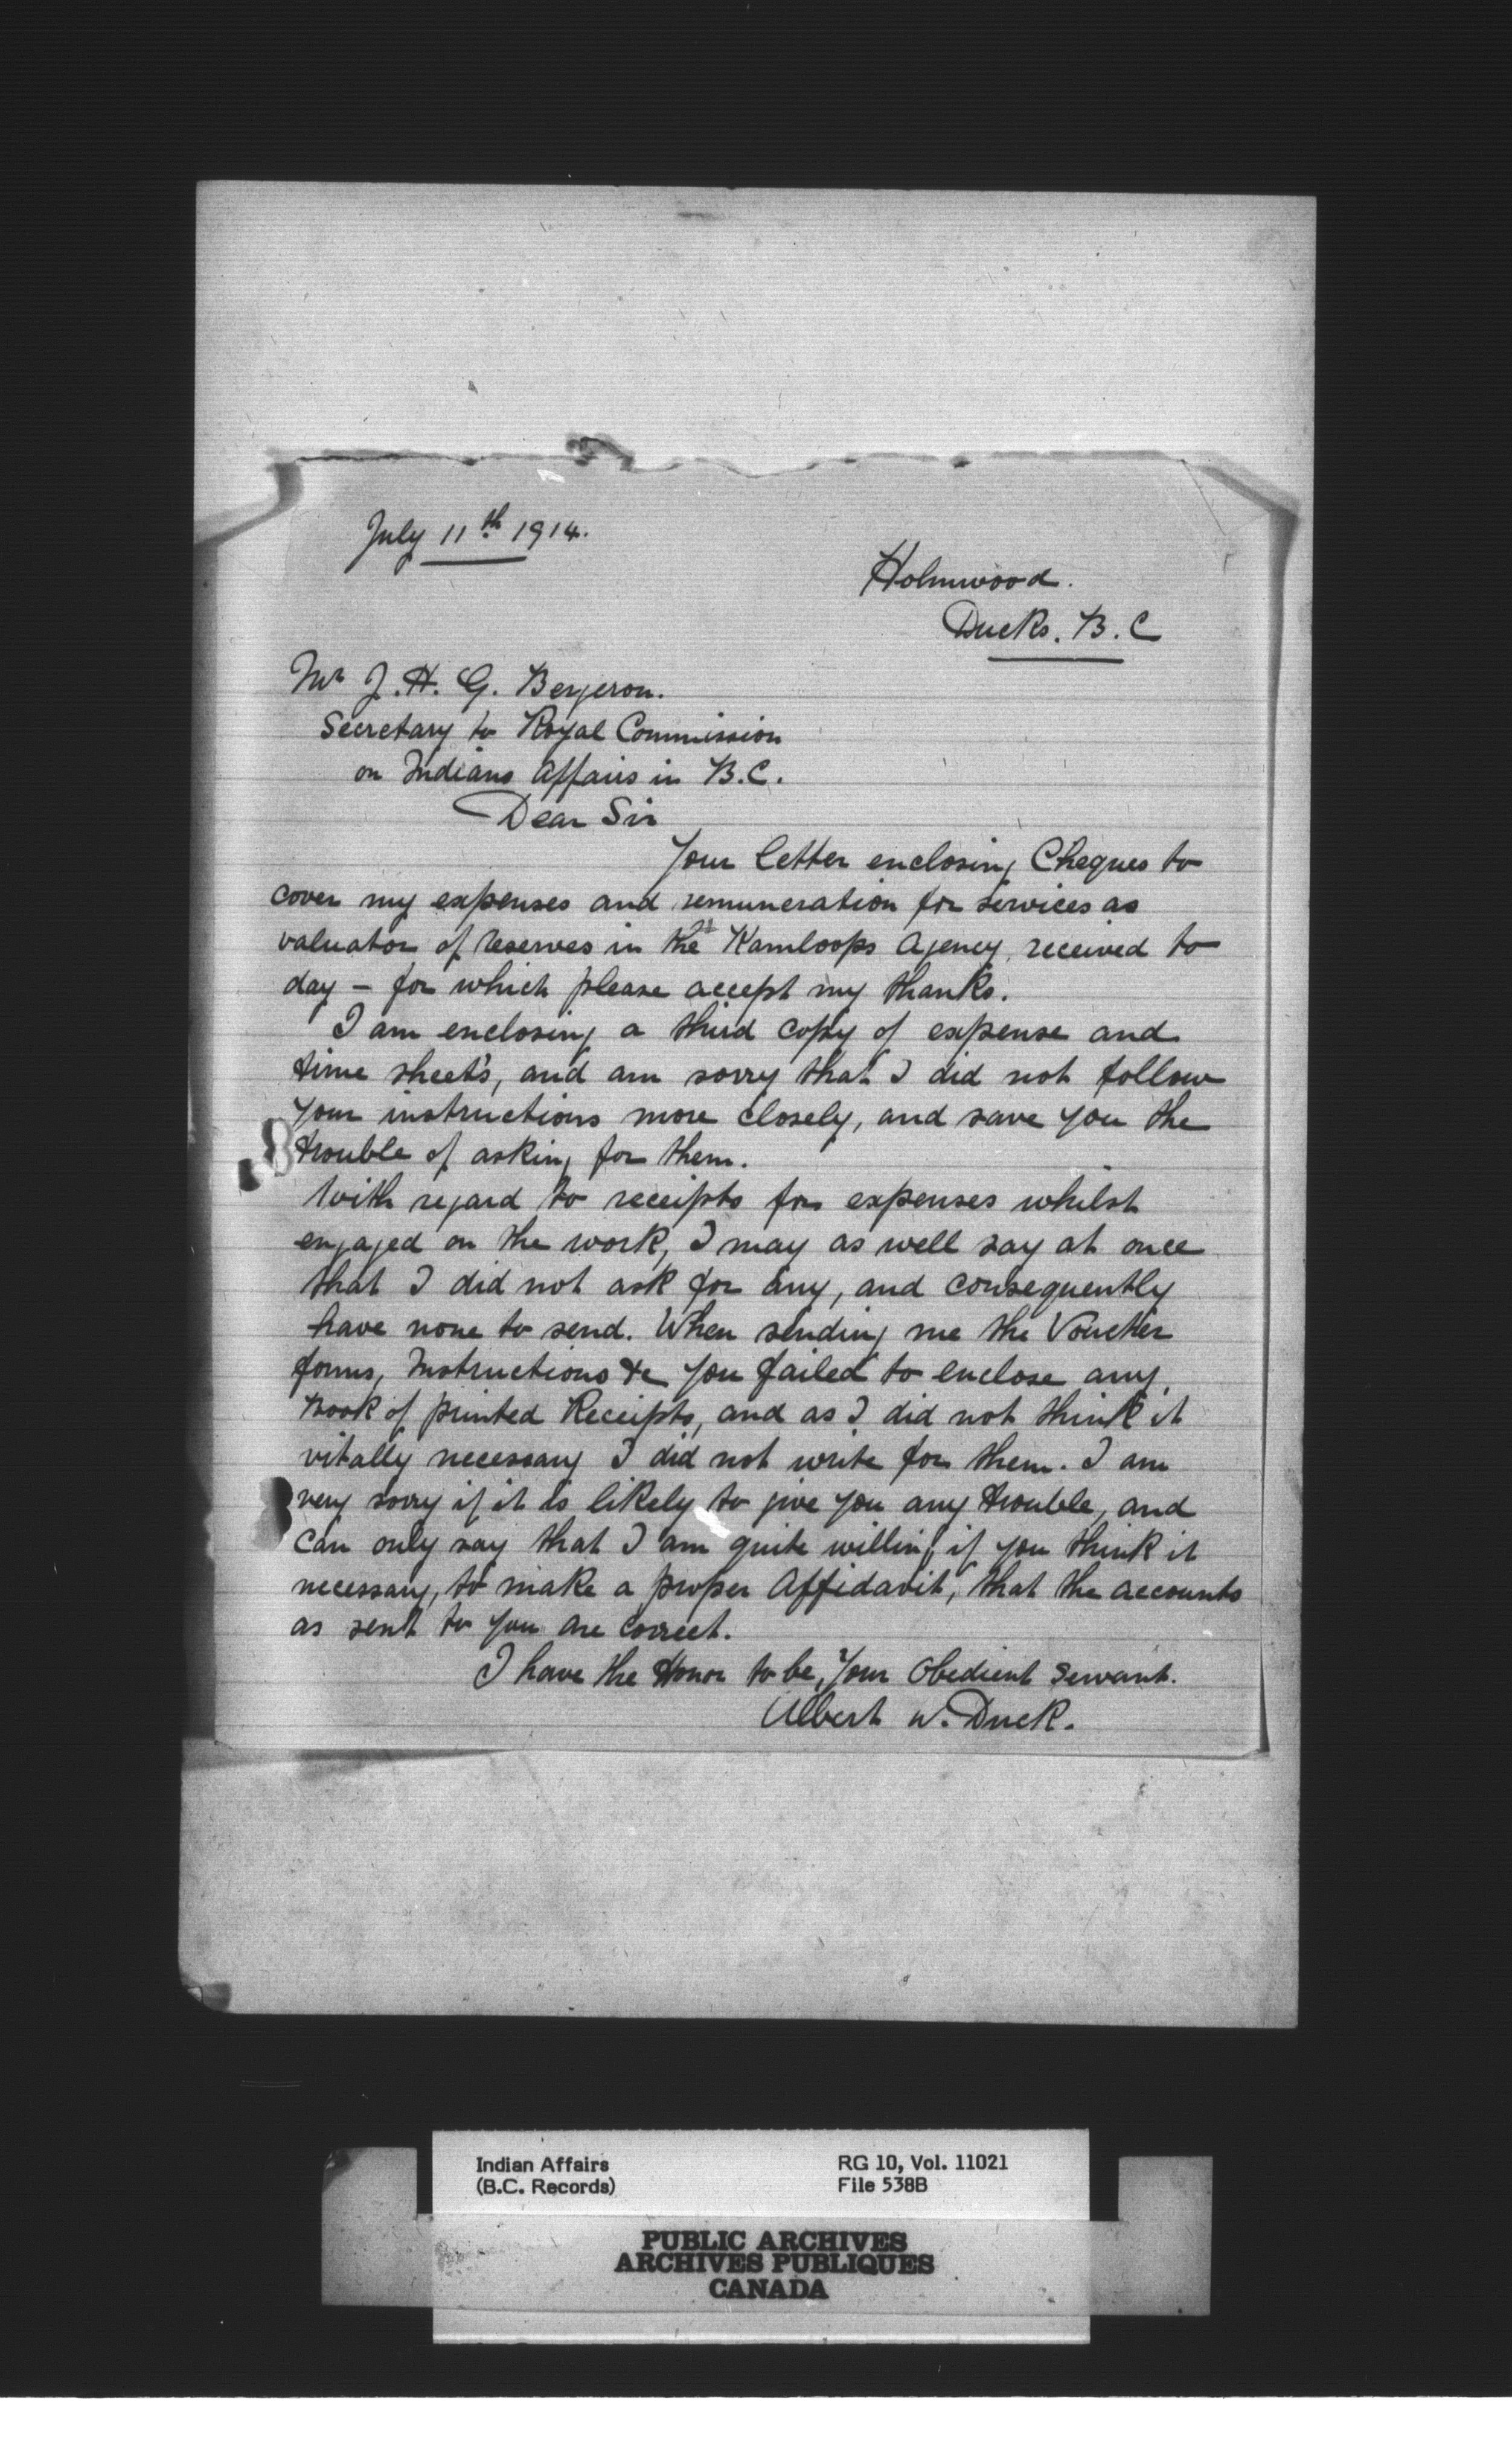 July 11th 1914.
Holmwood.
Ducks. B.C
Mr J. H. G. Bergeron.
Secretary to Royal Commission
on Indians Affairs in B.C.
Dear Sir
Your letter enclosing Cheques to
cover my expenses and remuneration for services as
valuator of reserves in the Kamloops Agency, received to
day – for which please accept my thanks.
I am enclosing a third copy of expense and
time sheet's, and am sorry that I did not follow
your instructions more closely, and save you the
trouble of asking for them.
With regard to receipts for expenses whilst
engaged on the work, I may as well say at once
that I did not ask for any, and consequently
have none to send. When sending me the Voucher
forms, Instructions &c you failed to enclose any
Book of printed Receipts, and as I did not think it
vitally necessary I did not write for them. I am
very sorry if it is likely to give you any trouble, and
can only say that I am quite willing, if you think it
necessary, to make a proper Affidavit, that the accounts
as sent to you are correct.
I have the Honor to be, Your Obedient Servant.
Albert W. Duck.
Indian Affairs
(B.C. Records)
RG 10, Vol. 11021
File 538B
PUBLIC ARCHIVES
ARCHIVES PUBLIQUES
CANADA